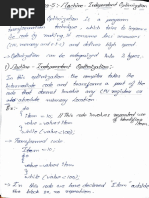 -5 : Machine Independent Optimization
Optimization is a program
transformation technique, which tries to improve
code by making it consume less resources
(i.e. memory and etc.) and deliver high speed
→ Optimization can be categorized into 2 types :
1) Machine - Independent Optimization :-
In this optimization the compiler takes the
intermediate code and transforms a part of the
code that doesnot involve any CPU registers
absolute memory locations.
for eg:-
do
{
item = 10;
value = value + item
} while (value < 100);
→ Transformed code
Item = 10;
do
{
value = value + item
} while (value < 100);
→ In this code we have declared Item outside
the block so no repeatation.